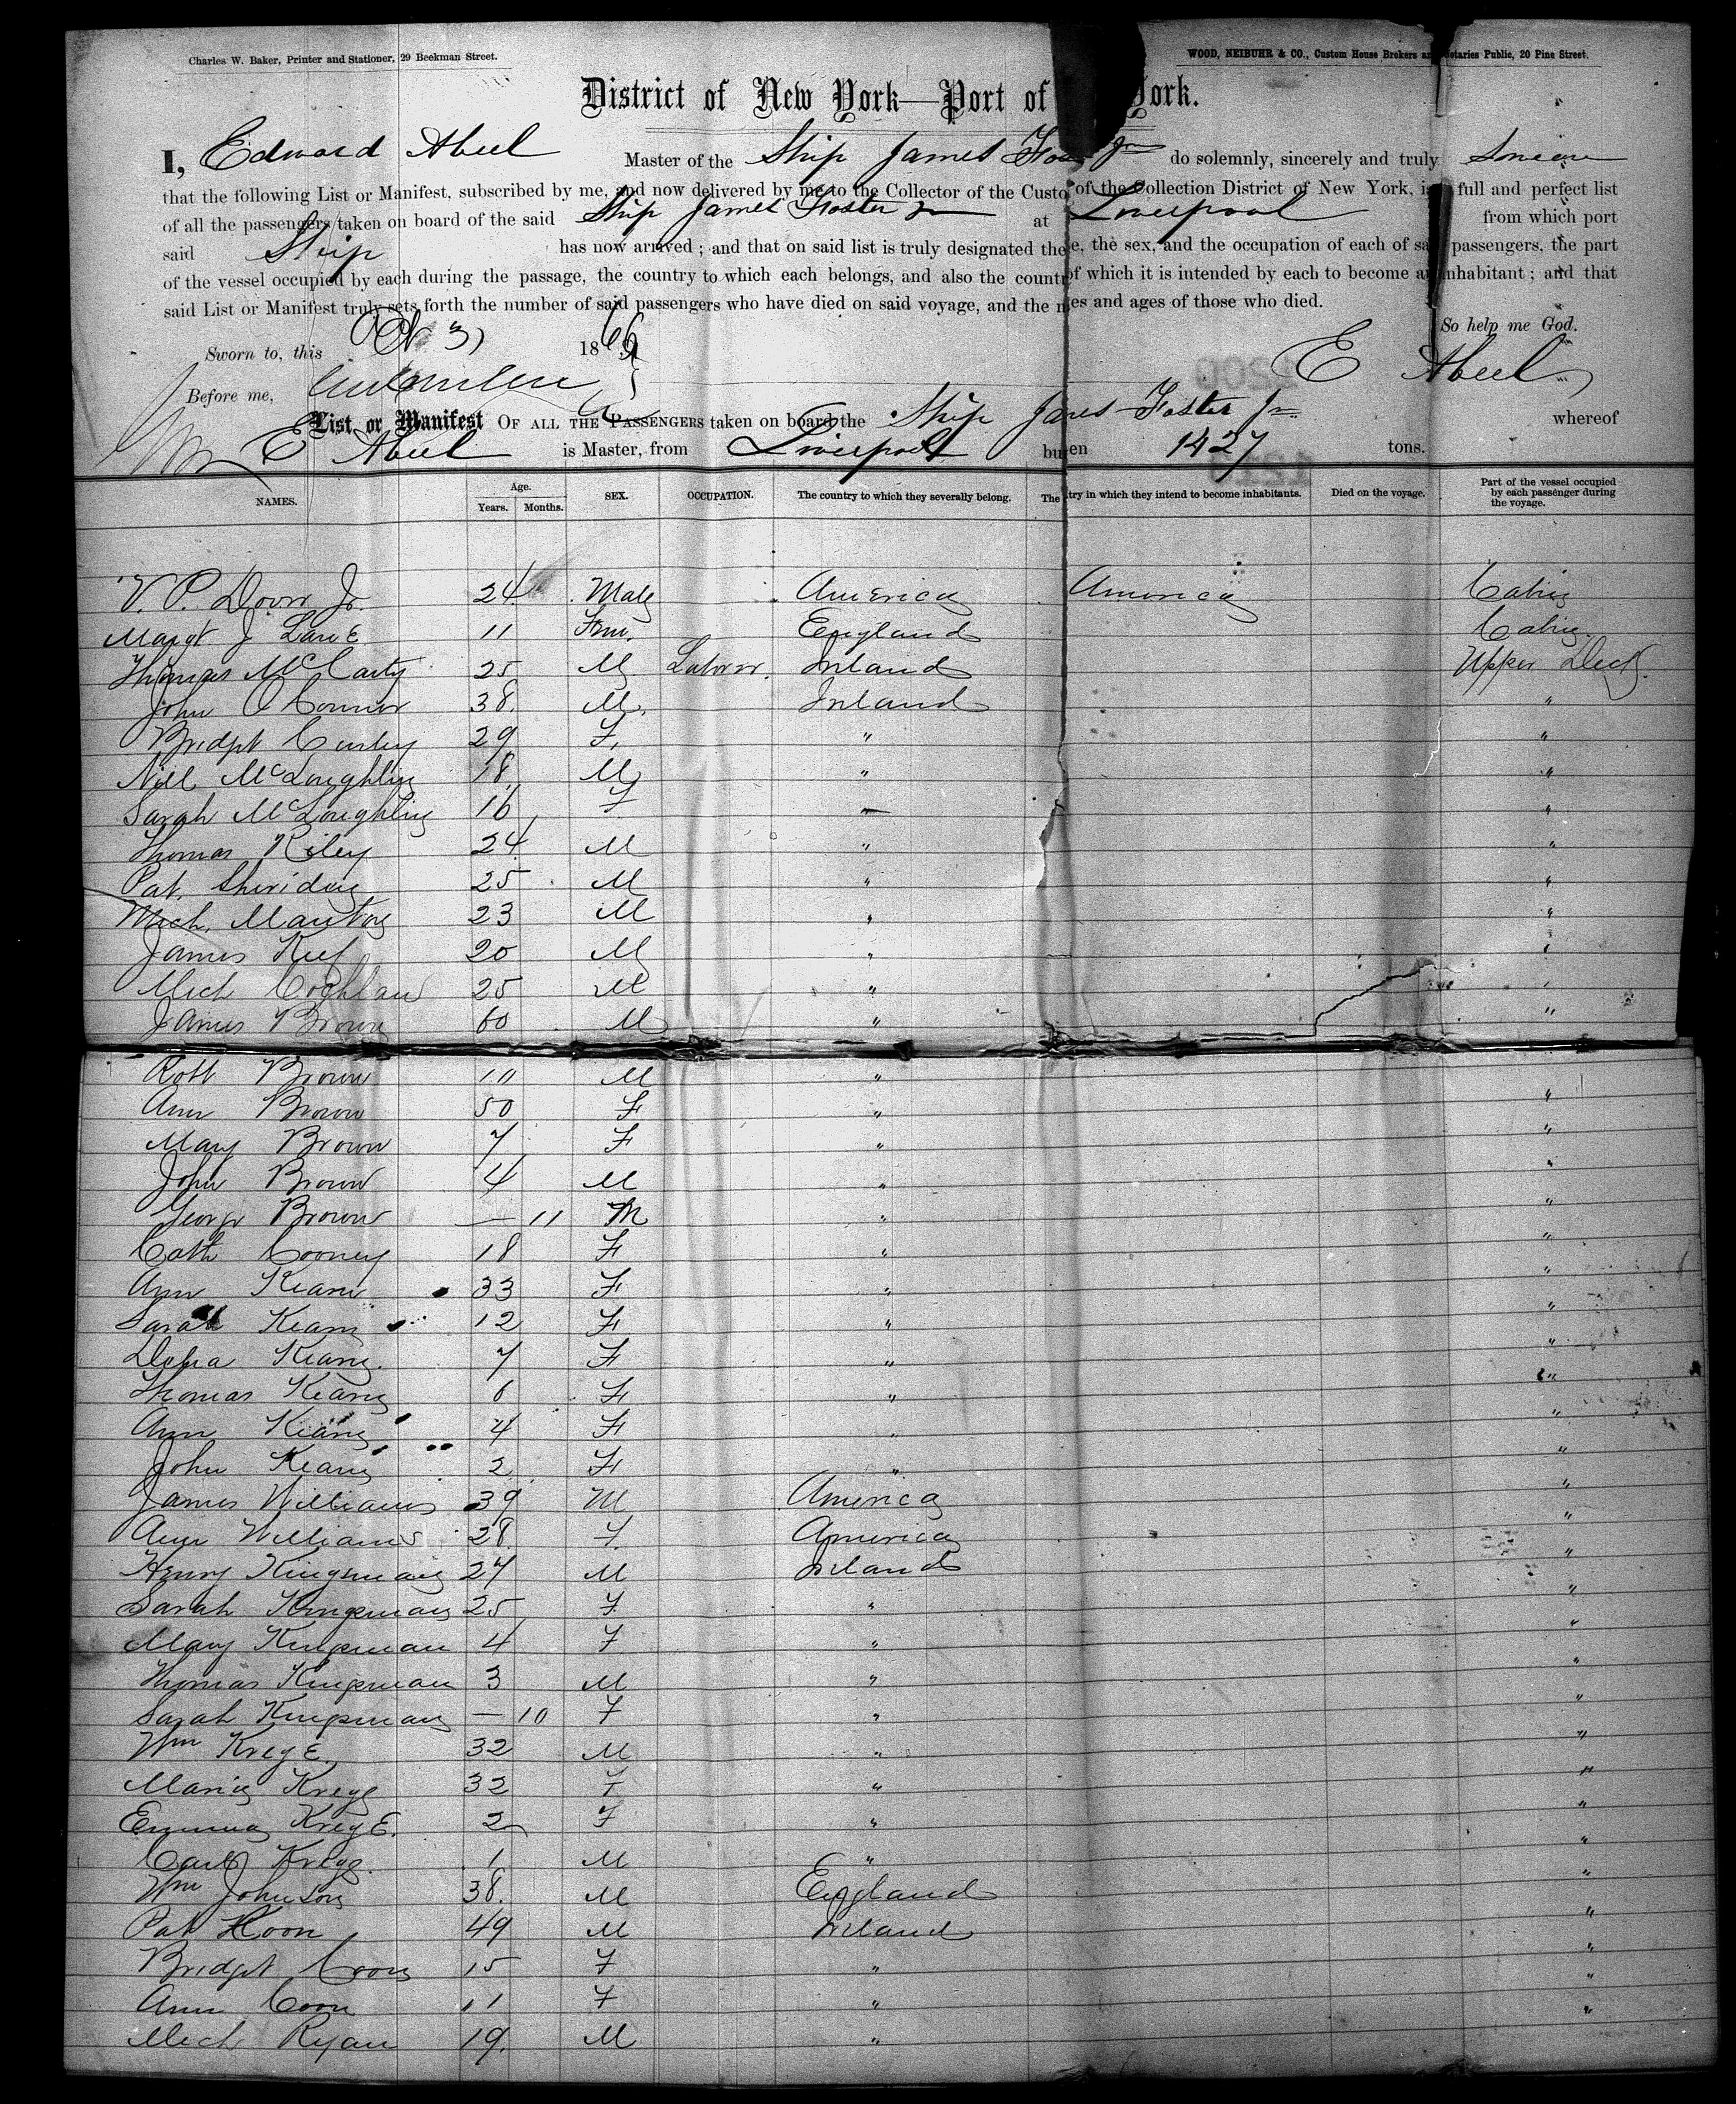 Charles W. Baker, Printer and Stationer, 29 Beekman Street.
WOOD, NEIBUHR & CO., Custom House Brokers an otaries Public, 20 Pine Street.
District of New York—Port of York.
I, Edward Abeel Master of the Ship James Fos Jr do solemnly, sincerely and truly swear
that the following List or Manifest, subscribed by me, and now delivered by me to the Collector of the Custo of the Collection District of New York, is full and perfect list
of all the passengers taken on board of the said Ship James Foster Jr at Liverpool from which port
said Ship has now arrived; and that on said list is truly designated the e, the sex, and the occupation of each of sa passengers, the part
of the vessel occupied by each during the passage, the country to which each belongs, and also the countr of which it is intended by each to become an inhabitant; and that
said List or Manifest truly sets forth the number of said passengers who have died on said voyage, and the n es and ages of those who died.
So help me God.
Sworn to, this Oct 31 1866
E Abeel
Before me,
List or Manifest OF ALL THE PASSENGERS taken on board the Ship James Foster Jr whereof
E Abeel is Master, from Liverpool bu en 1427 tons.
NAMES. Age. Years. Months. SEX. OCCUPATION. The country to which they severally belong. The try in which they intend to become inhabitants. Died on the voyage. Part of the vessel occupied by each passenger during the voyage.
V. P. Doorr Jr. 24 Male America America Cabin
Margt J Lane 11 Fem. England Cabin
Thomas McCarty 25 M Laborer. Ireland Upper Deck.
John O Connor 38. M. Ireland "
Bridget Curley 29 F. " "
Neil McLoughlin 18 M " "
Sarah McLoughlin 16 F — "
Thomas Riley 24 M " "
Pat. Sheridan 25 M " "
Mich. Manton 23 M " "
James Kief 20 M " "
Mich Coghlan 25 M " "
James Brown 60 M " "
Robt Brown 11 M "
Ann Brown 50 F " "
Mary Brown 7 F " "
John Brown 4 M " "
George Brown — 11 M " "
Cath Cooney 18 F " "
Ann Keane 33 F " "
Sarah Keane 12 F " "
Delia Keane. 7 F " "
Thomas Keane 6 F " "
Ann Keane 4 F " "
John Keane 2 F " "
James Williams 39 M America "
Ann Williams 28. F. America "
Henry Kingman 27 M Ireland "
Sarah Kingman 25 F. " "
Mary Kingman 4 F " "
Thomas Kingman 3 M " "
Sarah Kingman — 10 F " "
Wm Krege. 32 M " "
Maria Krege 32 F " "
Emma Krege. 2 F " "
Carl Krege. 1 M " "
Wm Johnson 38. M England "
Pat Koon 49 M Ireland "
Bridget Coon 15 F " "
Ann Coon 11 F " "
Mich Ryan 19. M " "